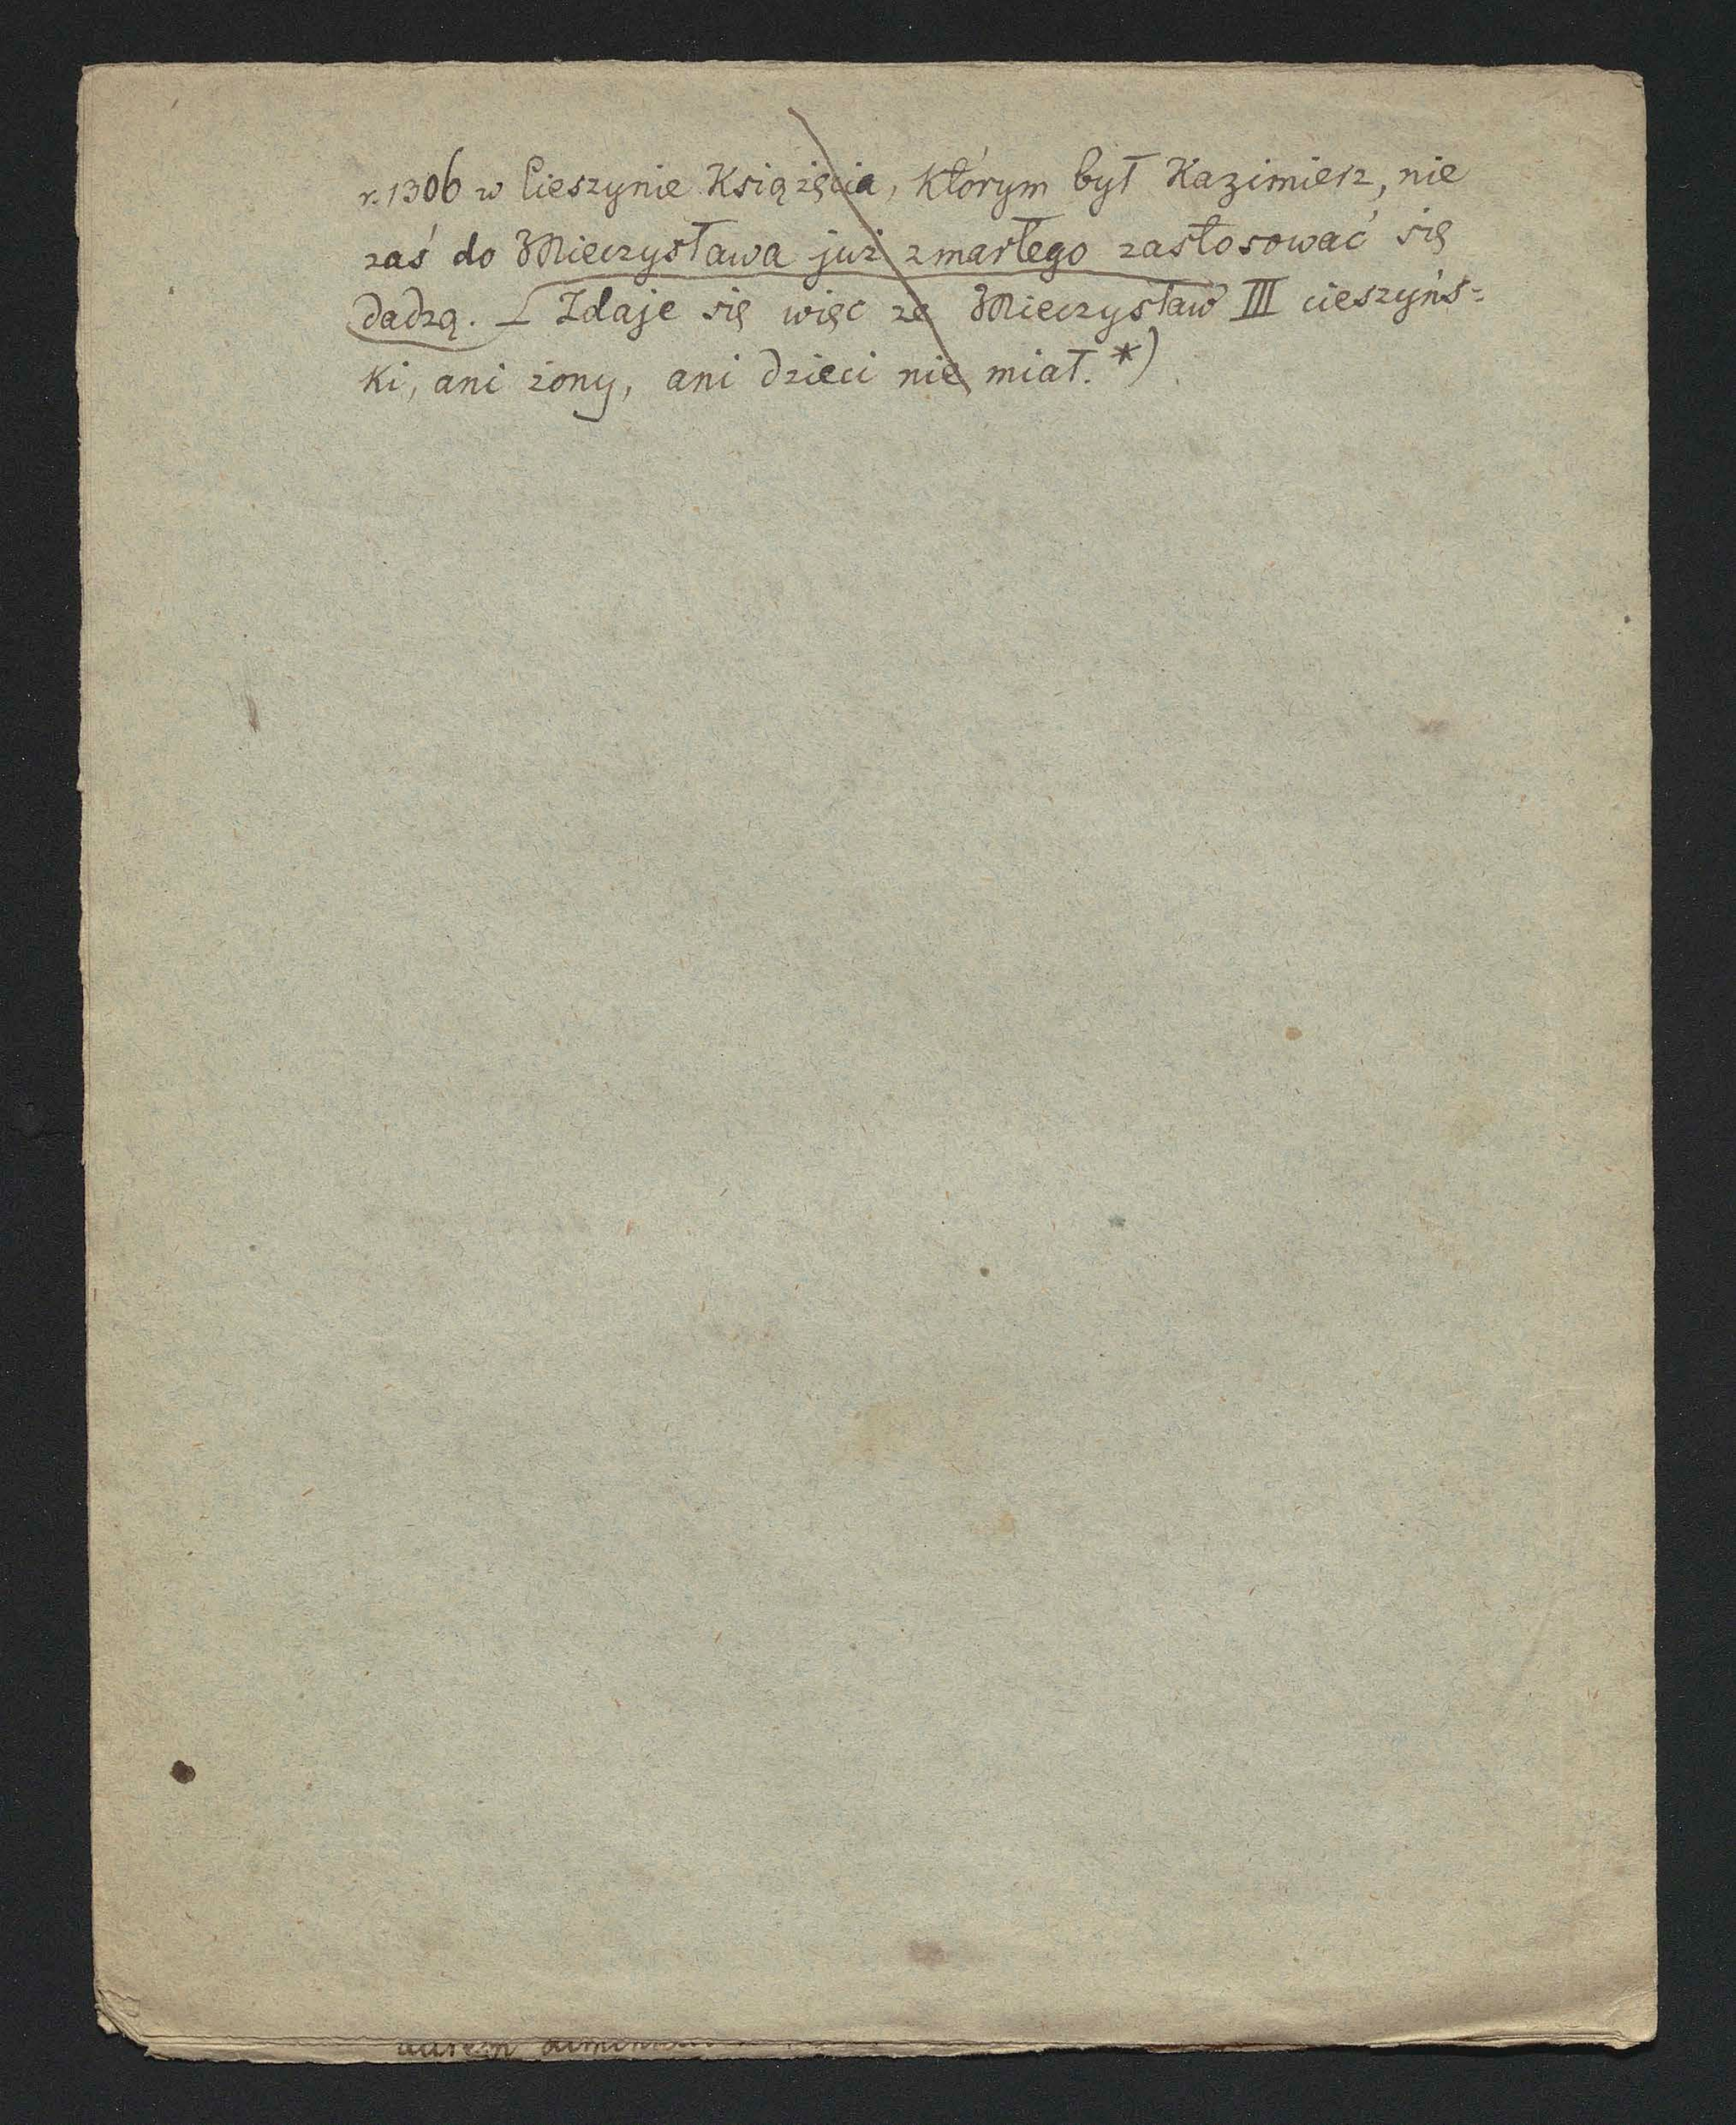 r. 1306 w Cieszynie Książęcia, którym był Kazimierz, nie
zaś do Mieczysława już zmarłego zastosować się
dadzą. [Zdaje się więc że Mieczysław III cieszyńs=
ki, ani żony, ani dzieci nie miał.*)